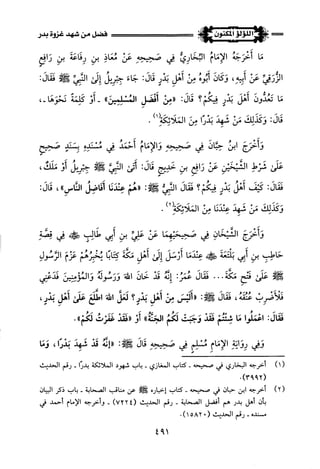 اللؤلؤ المكنون
فضل من شهد غزوة بدر
مَا أَخْرَجَهُ الإِمَامُ البُخَارِيُّ فِي صَحِيحِهِ عَنْ مُعَاذِ بنِ رِفَاعَةَ بنِ رَافِعٍ
الزُّرَقِيِّ عَنْ أَبِيهِ، وَكَانَ أَبُوهُ مِنْ أَهْلِ بَدْرٍ قَالَ: جَاءَ جِبْرِيلُ إِلَى النَّبِيِّ ﷺ فَقَالَ:
مَا تَعُدُّونَ أَهْلَ بَدْرٍ فِيكُمْ؟ قَالَ: «مِنْ أَفْضَلِ المُسْلِمِينَ» - أَوْ كَلِمَةً نَحْوَهَا -،
قَالَ: وَكَذَلِكَ مَنْ شَهِدَ بَدْرًا مِنَ المَلَائِكَةِ(١).
وَأَخْرَجَ ابنُ حِبَّانَ فِي صَحِيحِهِ وَالإِمَامُ أَحْمَدُ فِي مُسْنَدِهِ بِسَنَدٍ صَحِيحٍ
عَلَى شَرْطِ الشَّيْخَيْنِ عَنْ رَافِعِ بنِ خَدِيجٍ قَالَ: أَتَى النَّبِيَّ ﷺ جِبْرِيلُ أَوْ مَلَكٌ،
فَقَالَ: كَيْفَ أَهْلُ بَدْرٍ فِيكُمْ؟ فَقَالَ النَّبِيُّ ﷺ: «هُمْ عِنْدَنَا أَفَاضِلُ النَّاسِ»، قَالَ:
وَكَذَلِكَ مَنْ شَهِدَ عِنْدَنَا مِنَ المَلَائِكَةِ(٢).
وَأَخْرَجَ الشَّيْخَانِ فِي صَحِيحَيْهِمَا عَنْ عَلِيِّ بنِ أَبِي طَالِبٍ ﷺ فِي قِصَّةِ
حَاطِبِ بنِ أَبِي بَلْتَعَةَ ﷺ عِنْدَمَا أَرْسَلَ إِلَى أَهْلِ مَكَّةَ كِتَابًا يُخْبِرُهُمْ عَزْمَ الرَّسُولِ
ﷺ عَلَى فَتْحِ مَكَّةَ... فَقَالَ عُمَرُ: إِنَّهُ قَدْ خَانَ اللهَ وَرَسُولَهُ وَالمُؤْمِنِينَ فَدَعْنِي
فَلْأَضْرِبْ عُنُقَهُ، فَقَالَ ﷺ: «أَلَيْسَ مِنْ أَهْلِ بَدْرٍ؟ لَعَلَّ اللهَ اطَّلَعَ عَلَى أَهْلِ بَدْرٍ،
فَقَالَ: اعْمَلُوا مَا شِئْتُمْ فَقَدْ وَجَبَتْ لَكُمُ الجَنَّةُ» أَوْ «فَقَدْ غَفَرْتُ لَكُمْ».
وَفِي رِوَايَةِ الإِمَامِ مُسْلِمٍ فِي صَحِيحِهِ قَالَ ﷺ: «إِنَّهُ قَدْ شَهِدَ بَدْرًا، وَمَا
(١) أخرجه البخاري في صحيحه - كتاب المغازي - باب شهود الملائكة بدرًا - رقم الحديث
(٣٩٩٢).
(٢) أخرجه ابن حبان في صحيحه - كتاب إخباره ﷺ عن مناقب الصحابة - باب ذكر البيان
بأن أهل بدر هم أفضل الصحابة - رقم الحديث (٧٢٢٤) - وأخرجه الإمام أحمد في
مسنده - رقم الحديث (١٥٨٢٠).
٤٩١